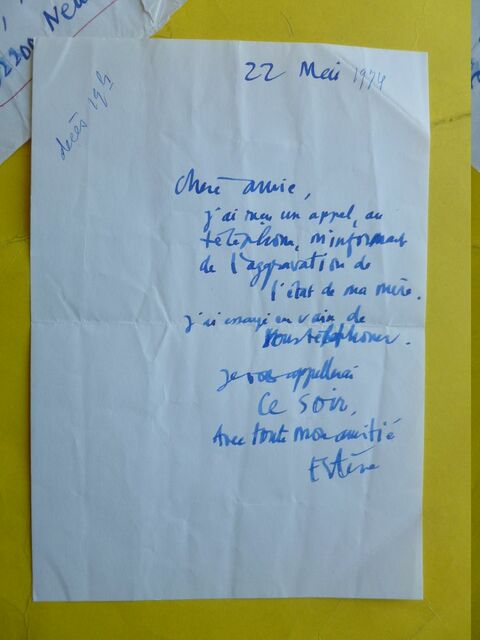 2200 Neu
22 Mai 1974
décès 19h
Chère amie,
j'ai reçu un appel, au
téléphone, m'informant
de l'aggravation de
l'état de ma mère.
j'ai essayé en vain de
vous téléphoner.
Je vous appellerai
Ce soir,
Avec toute mon amitié
Estève